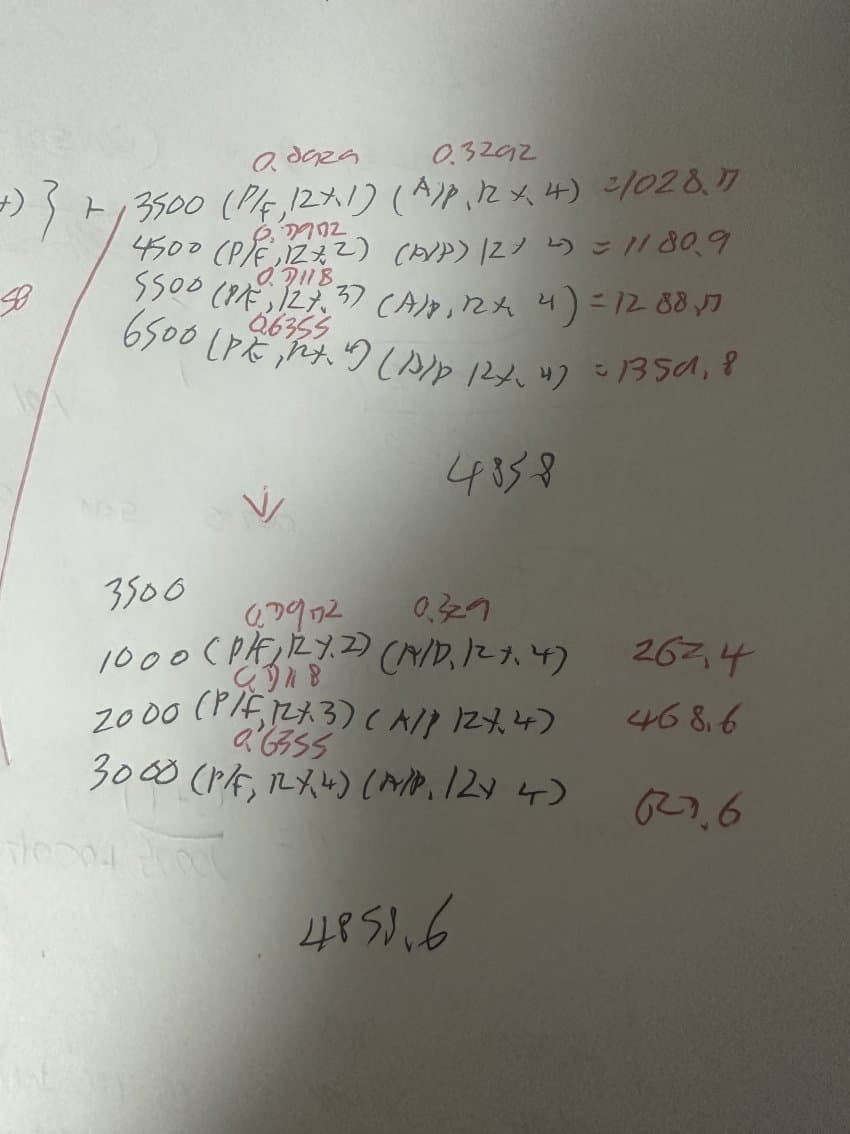 0.8929 0.3292
+) } + 3500 (P/F, 12%, 1) (A/P, 12%, 4) = 1028.7
0.7972
4500 (P/F, 12%, 2) (A/P, 12%, 4) = 1180.9
0.7118
58 5500 (P/F, 12%, 3) (A/P, 12%, 4) = 1288.7
0.6355
6500 (P/F, 12%, 4) (A/P 12%, 4) = 1359.8
4858
↓
3500
0.7972 0.329
1000 (P/F, 12%, 2) (A/P, 12%, 4) 262.4
0.7118
2000 (P/F, 12%, 3) (A/P 12%, 4) 468.6
0.6355
3000 (P/F, 12%, 4) (A/P, 12% 4) 627.6
4858.6